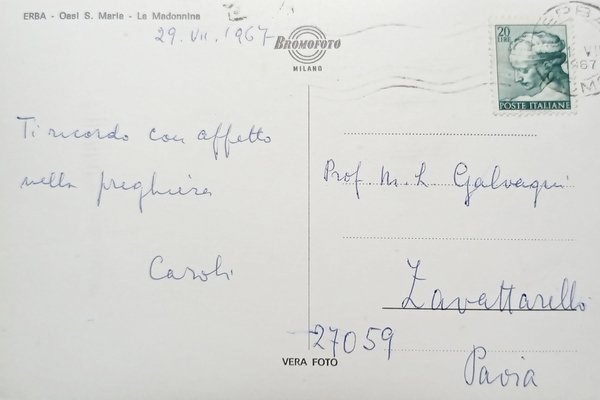 ERBA - Oasi S. Maria - La Madonnina
29. VII. 1967
BROMOFOTO
MILANO
20
LIRE
POSTE ITALIANE
Ti ricordo con affetto
nella preghiera
Caroli
Prof. M. L Galvagni
Zavattarello
27059
Pavia
VERA FOTO